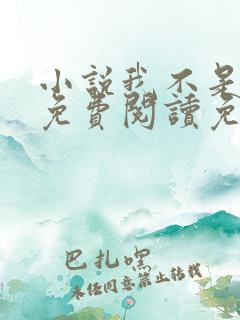 小説我不是
免費閱讀免
巴扎嘿
未经同意禁止转载